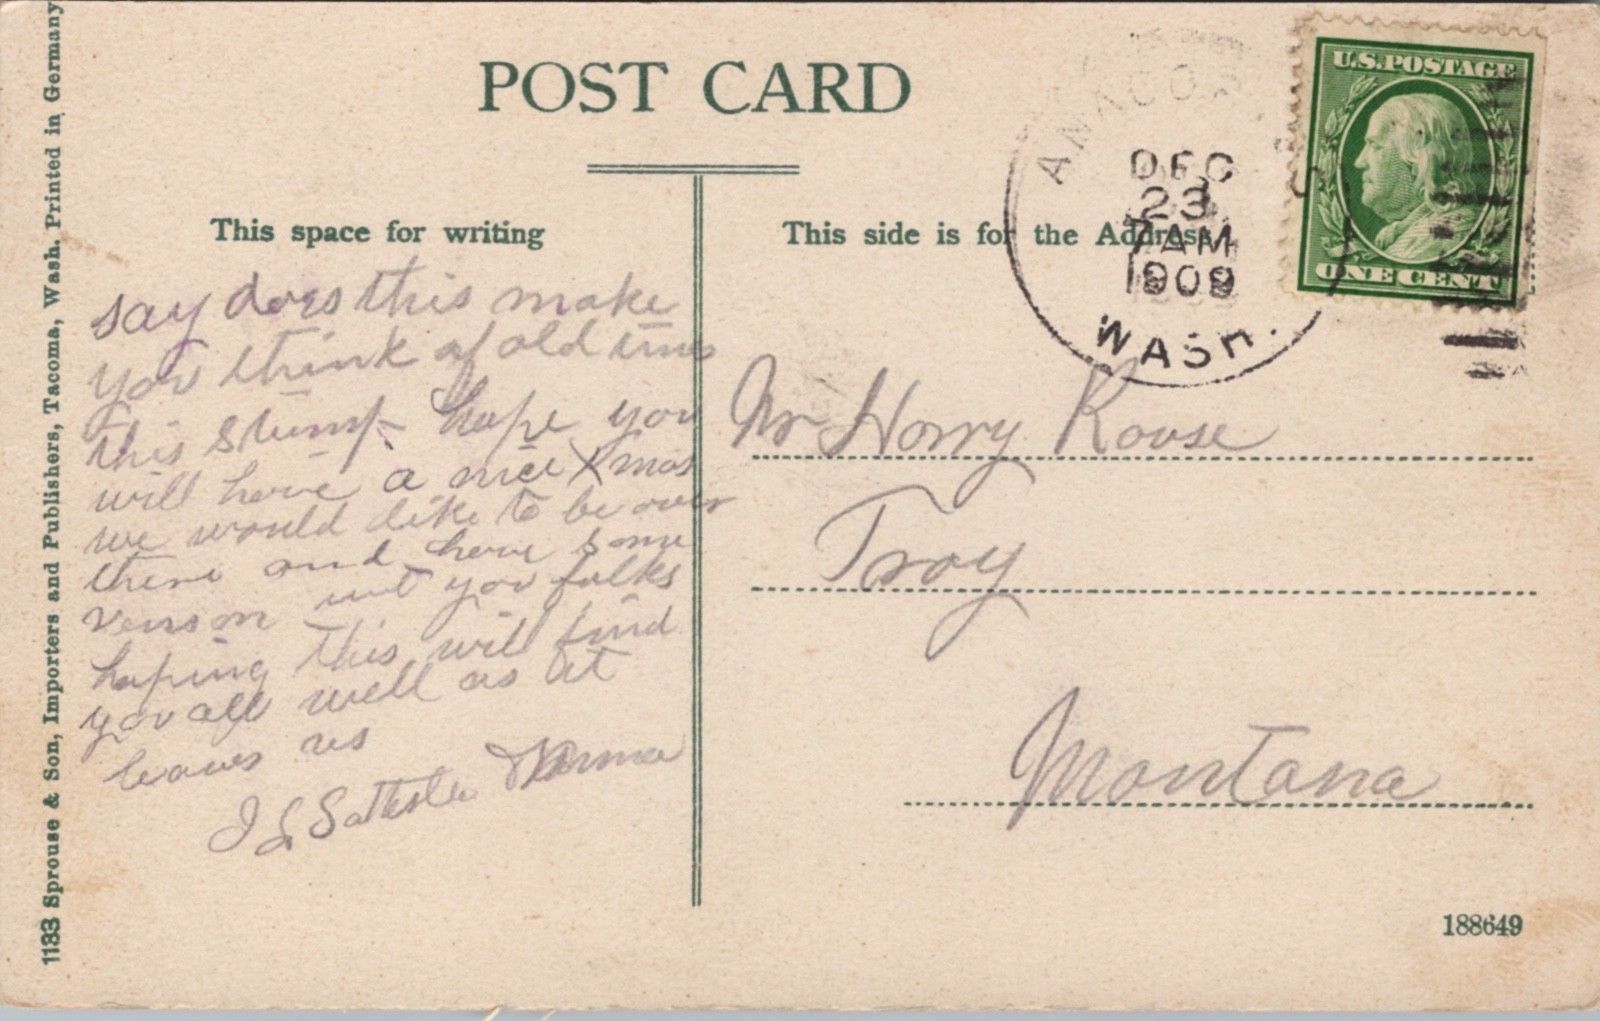 POST CARD
U.S. POSTAGE
ONE CENT
ANACO
DEC
23
7 AM
1909
WASH.
This space for writing
This side is for the Address
say does this make
you think of old times
this stump hope you
will have a nice Xmas
we would like to be over
there and have some
venson wit you folks
hoping this will find
you all well as it
leaves us
J L
Mr Harry Rouse
Troy
Montana
1183 Sprouse & Son, Importers and Publishers, Tacoma, Wash. Printed in Germany
188649